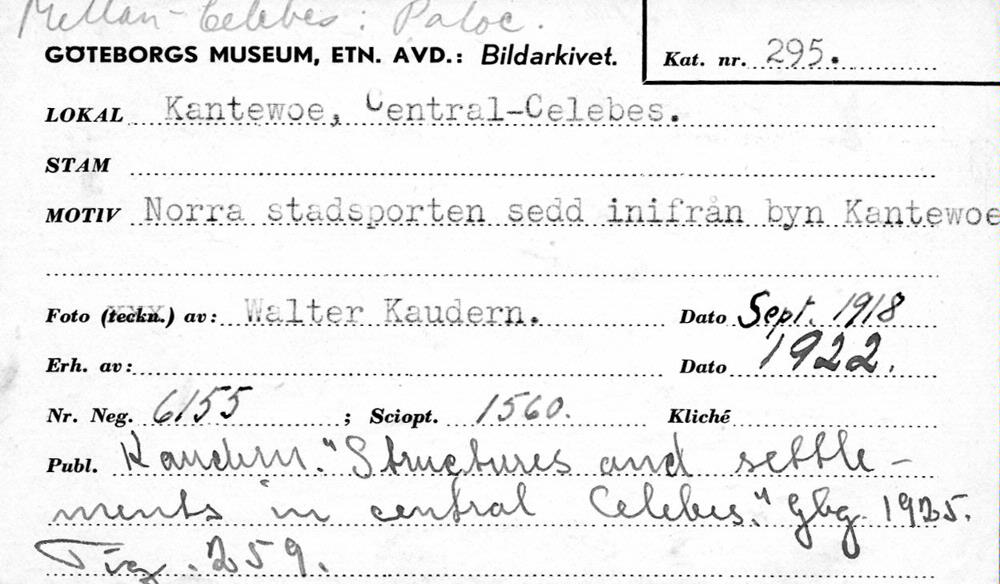 Mellan-Celebes: Paloe.
GÖTEBORGS MUSEUM, ETN. AVD.: Bildarkivet.
Kat. nr. 295.
LOKAL Kantewoe, Central-Celebes.
STAM
MOTIV Norra stadsporten sedd inifrån byn Kantewoe
Foto (teckn.) av: Walter Kaudern. Dato Sept. 1918
Erh. av: Dato 1922.
Nr. Neg. 6155 ; Sciopt. 1560. Kliché
Publ. Kaudern. "Structures and settle-
ments in central Celebes." Gbg 1925.
Fig. 259.